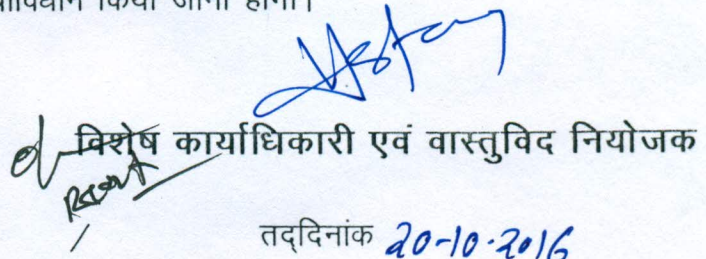 किया जाना होगा।
विशेष कार्याधिकारी एवं वास्तुविद नियोजक
तद्दिनांक 20-10-2016